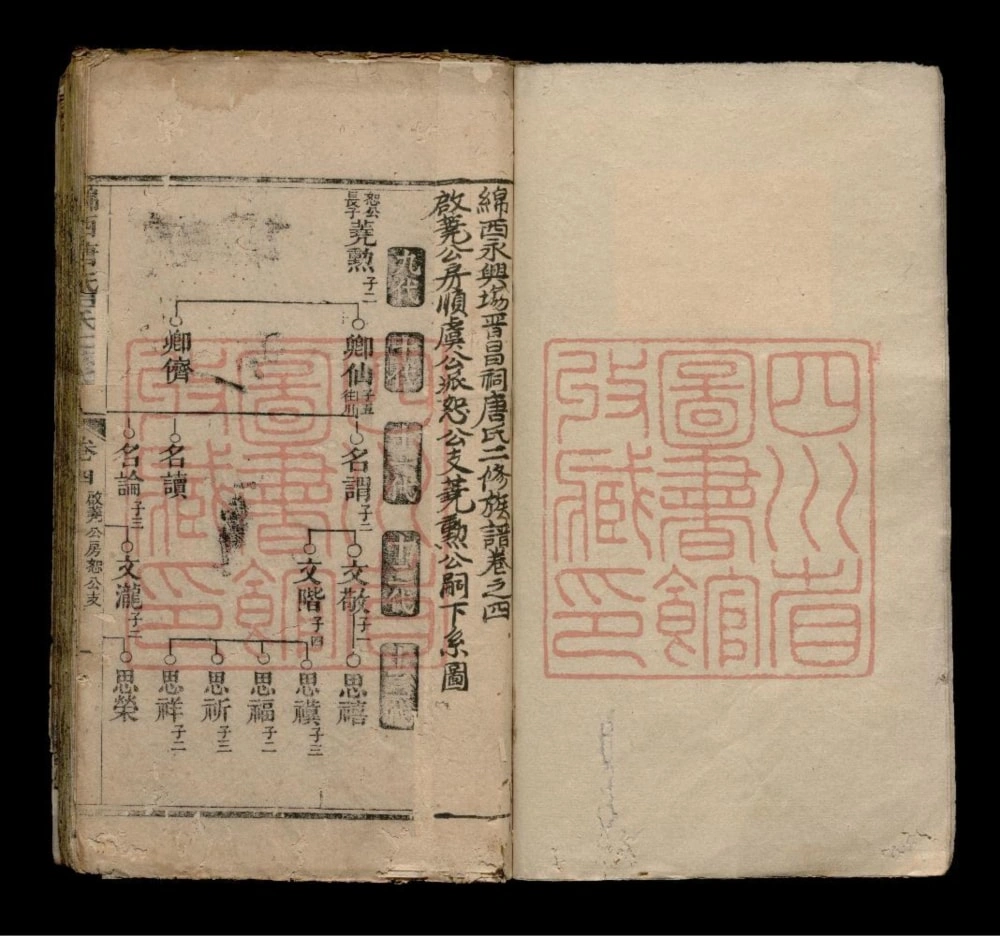 四川省
圖書館
收藏印
綿西永興場晋昌祠唐氏二修族譜卷之四
啟蕘公房順虞公派恕公支蕘勲公嗣下系圖
九代
十代
十一代
十二代
十三代
恕公長子
蕘勲子二
卿仙子五
卿儕
名謂子二
名讀
名論子三
文敬子一
文階子四
文瀧子二
思禧
思禥子三
思福子二
思祈子三
思祥子二
思榮
卷四
啟蕘公房恕公支
一